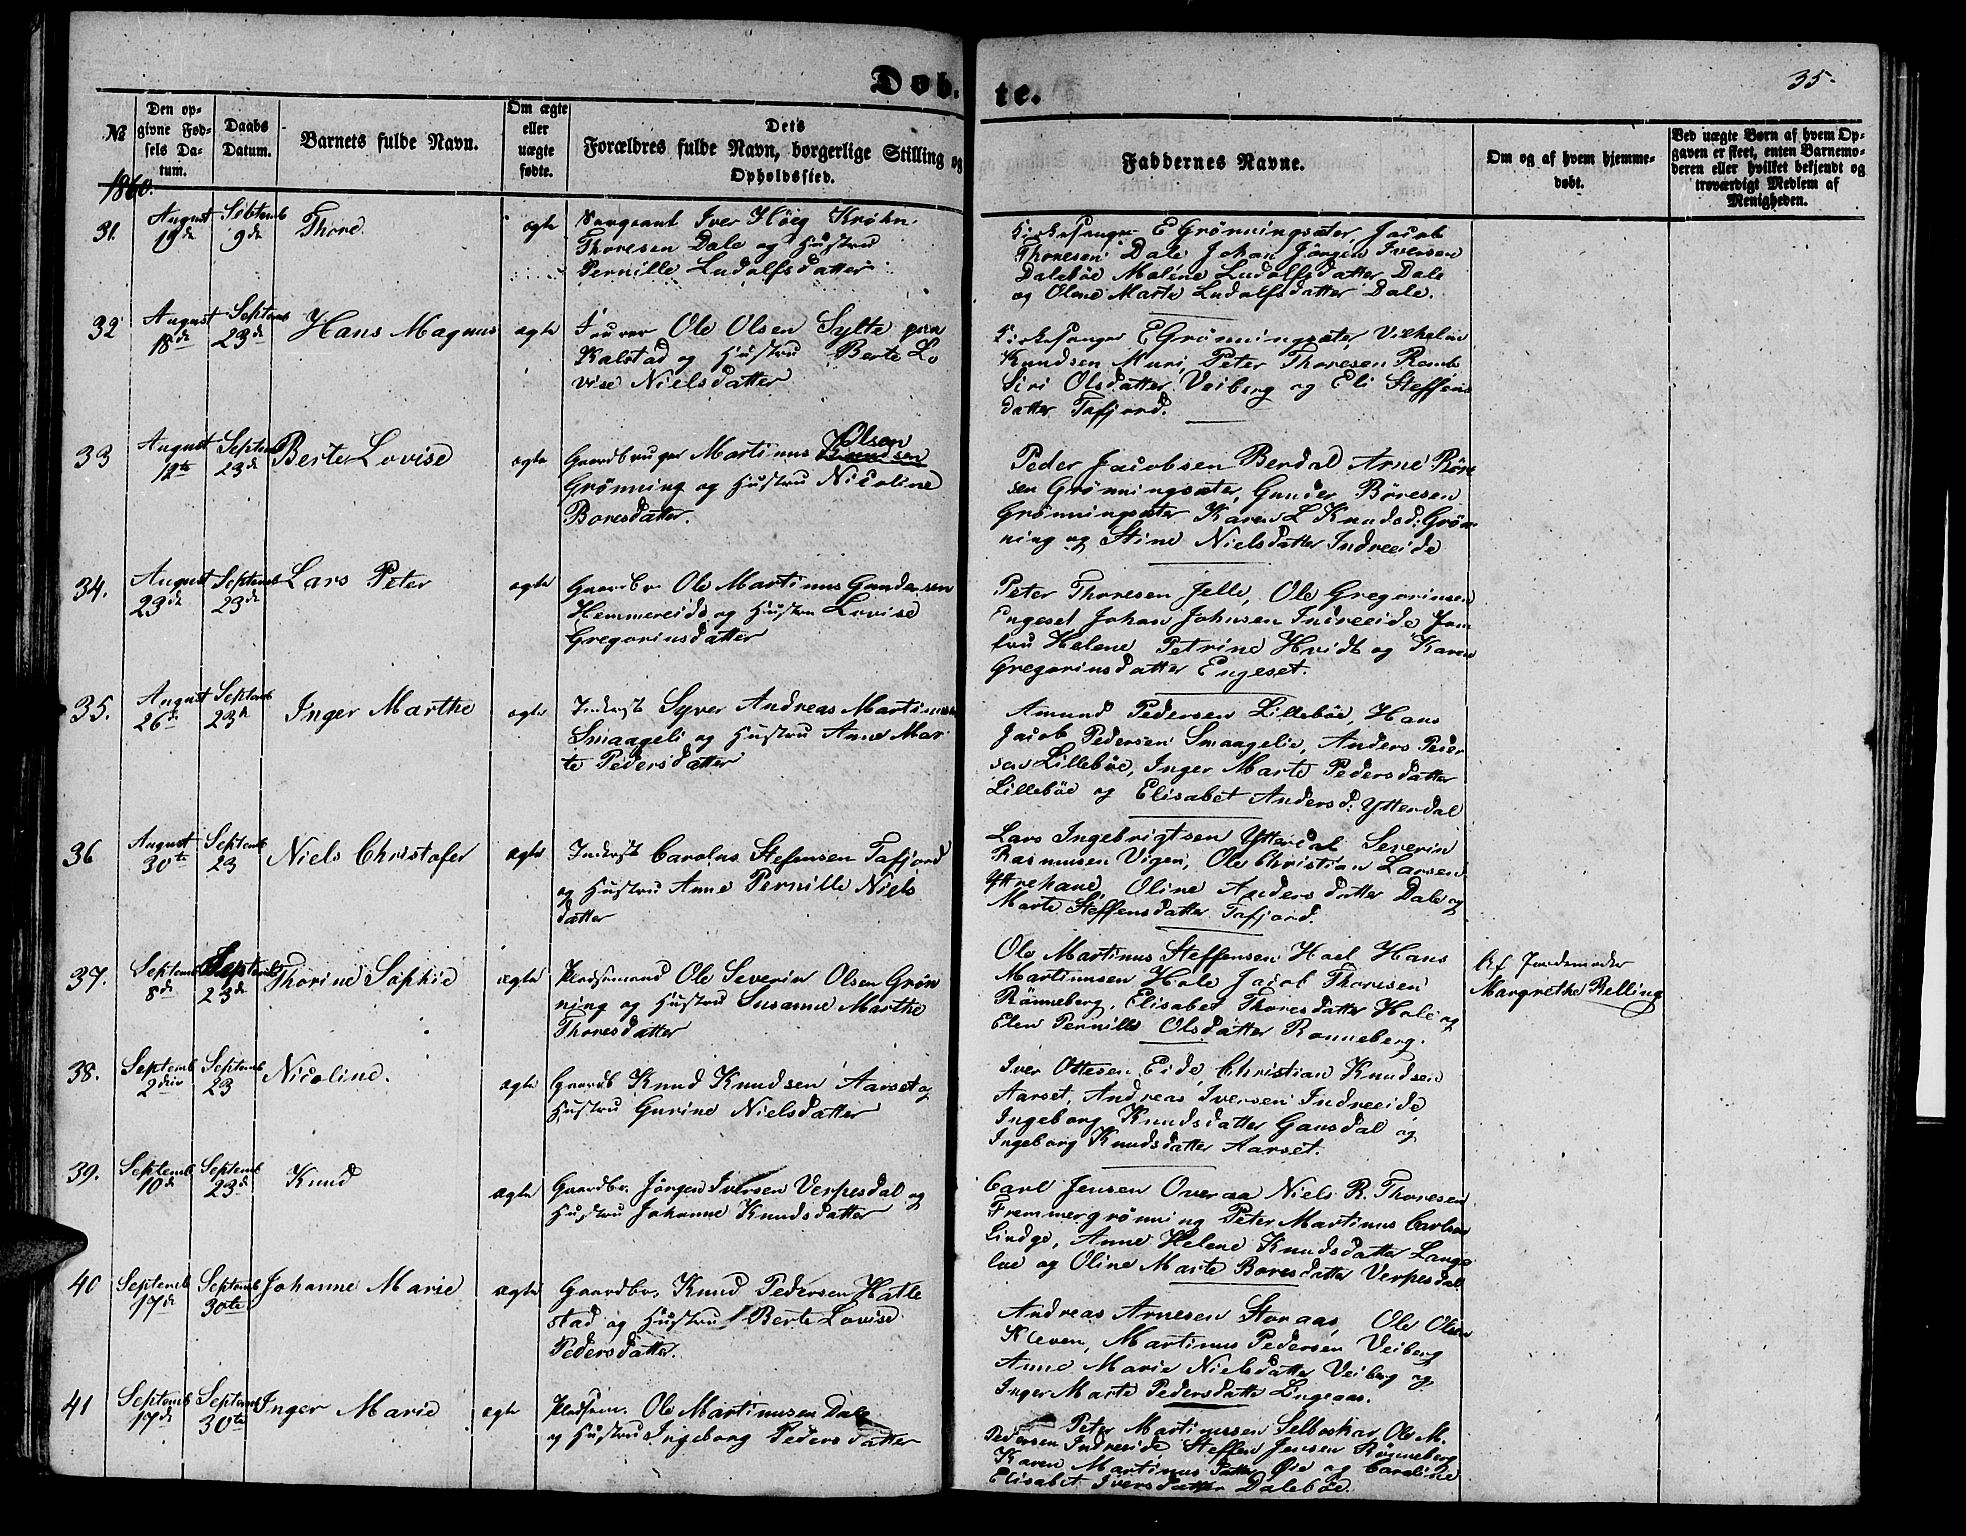 Døb-
te.
35.
№
Den op-
givne Fød-
sels Da-
tum.
Daabs
Datum.
Barnets fulde Navn.
Om ægte
eller
uægte
fødte.
Dets
Forældres fulde Navn, borgerlige Stilling og
Opholdssted.
Faddernes Navne.
Om og af hvem hjemme-
døbt.
Ved uægte Børn af hvem Op-
gaven er skeet, enten Barnemo-
deren eller hvilket bekjendt og
troværdigt Medlem af
Menigheden.
1860.
31.
August
19de
Septemb
9de
Thore.
ægte
Sergeant Iver Höeg Kröhn
Thoresen Dale og Hustru
Pernille Ludolfsdatter
Kirkesanger E Grönningsæter Jacob
Thoresen Dale Johan Jörgen Iversen
Daleböe Maline Ludolfsdatter Dale
og Oline Marte Ludolfsdatter Dale.
32
August
18de
Septemb
23de
Hans Magnus
ægte
Ole Olsen Sylte paa
Kalstad og Hustru Berte Lo
vise Nielsdatter
Kirkesanger E Grönningsæter Vilhelm
Knudsen Muri, Peter Thoresen
Siri Olsdatter Veiberg og Eli Steffens
datter Tafjord.
33
August
12te
Septem
23de
Berte Lovise
ægte
Gaardbruger Martinus Olsen
Grönning og Hustru Nicoline
Boresdatter.
Peder Jacobsen Berdal Arne Böre
sen Grönningsæter, Gunder Böresen
Grönningsæter Karen L Knudsd: Grön
ning og Stine Nielsdatter Indreeide
34.
August
23de
Septemb
23de
Lars Peter
ægte
Gaardbr Ole Martinus Gundersen
Hemmereide og Hustru Lovise
Gregoriusdatter
Peter Thoresen Jelle, Ole Gregoriusen
Engeset Johan Johnsen Indreeide Jom
fru Helene Petrine Hvidt og Karen
Gregoriusdatter Engeset.
35.
August
26de
Septemb
23de
Inger Marthe
ægte
Inderst Syver Andreas Martinusen
Smaageli og Hustru Anne Mar
te Pedersdatter
Amund Pedersen Lilleböe, Hans
Jacob Pedersen Smaagelie, Anders Peder
sen Lilleböe, Inger Marte Pedersdatter
Lilleböe og Elisabet Andersd: Ytterdal
36
August
30te
Septemb
23
Niels Christofer
ægte
Inderst Carolus Stefensen Tafjord
og Hustru Anne Pernille Niels
datter
Lars Ingebrigtsen Ytterdal Severin
Rasmusen Vigen, Ole Christian Larsen
Yttrehane, Oline Andersdatter Dale og
Marte Steffensdatter Tafjord.
37.
Septemb
8de
Septemb
23de
Thorine Sophie
ægte
Pladsmand Ole Severin Olsen Grön
ning og Hustru Susanne Marthe
Thoresdatter
Ole Martinus Steffensen Hoel Hans
Martinusen Hole Jacob Thoresen
Rönneberg, Elisabet Thoresdatter Hole og
Elen Pernille Olsdatter Ronneberg.
Af Jordemoder
Margrethe Relling
38.
Septemb
2den
Septemb
23
Nicoline.
ægte
Gaardb Knud Knudsen Aarset og
Hustru Gurine Nielsdatter
Iver Ottesen Eide, Christian Knudsen
Aarset, Andreas Iversen Indreeide
Ingeborg Knudsdatter Gausdal og
Ingeborg Knudsdatter Aarset.
39.
Septemb
10de
Septemb
23de
Knud
ægte
Gaardbr. Jörgen Iversen Verpesdal og
Hustru Johanne Knudsdatter
Carl Jensen Overaa Niels R. Thoresen
Fremmergrönning Peter Martinus Carlsen
Linge, Anne Helene Knudsdatter Lange
loe og Oline Marte Boresdatter Verpesdal
40
Septemb
17de
Septemb
30te
Johanne Marie
ægte
Gaardbr. Knud Pedersen Hatle
stad og Hustru Berte Lovise
Pedersdatter.
Andreas Arnesen Storaas, Ole Olsen
Kleven, Martinus Pedersen Veiberg
Anne Marie Nielsdatter Veiberg og
Inger Marte Pedersdatte Lingeaas.
41
Septemb
17de
Septemb
30te
Inger Marie
ægte
Pladsm. Ole Martinusen Dale
og Hustru Ingeborg Pedersdatter
Peter Martinussen Selboskar, Ole M.
Pedersen Indreeide Steffen Jensen Rönneberg
Karen Martinusdatter Öie og Caroline
Elisabet Iversdatter Daleböe.